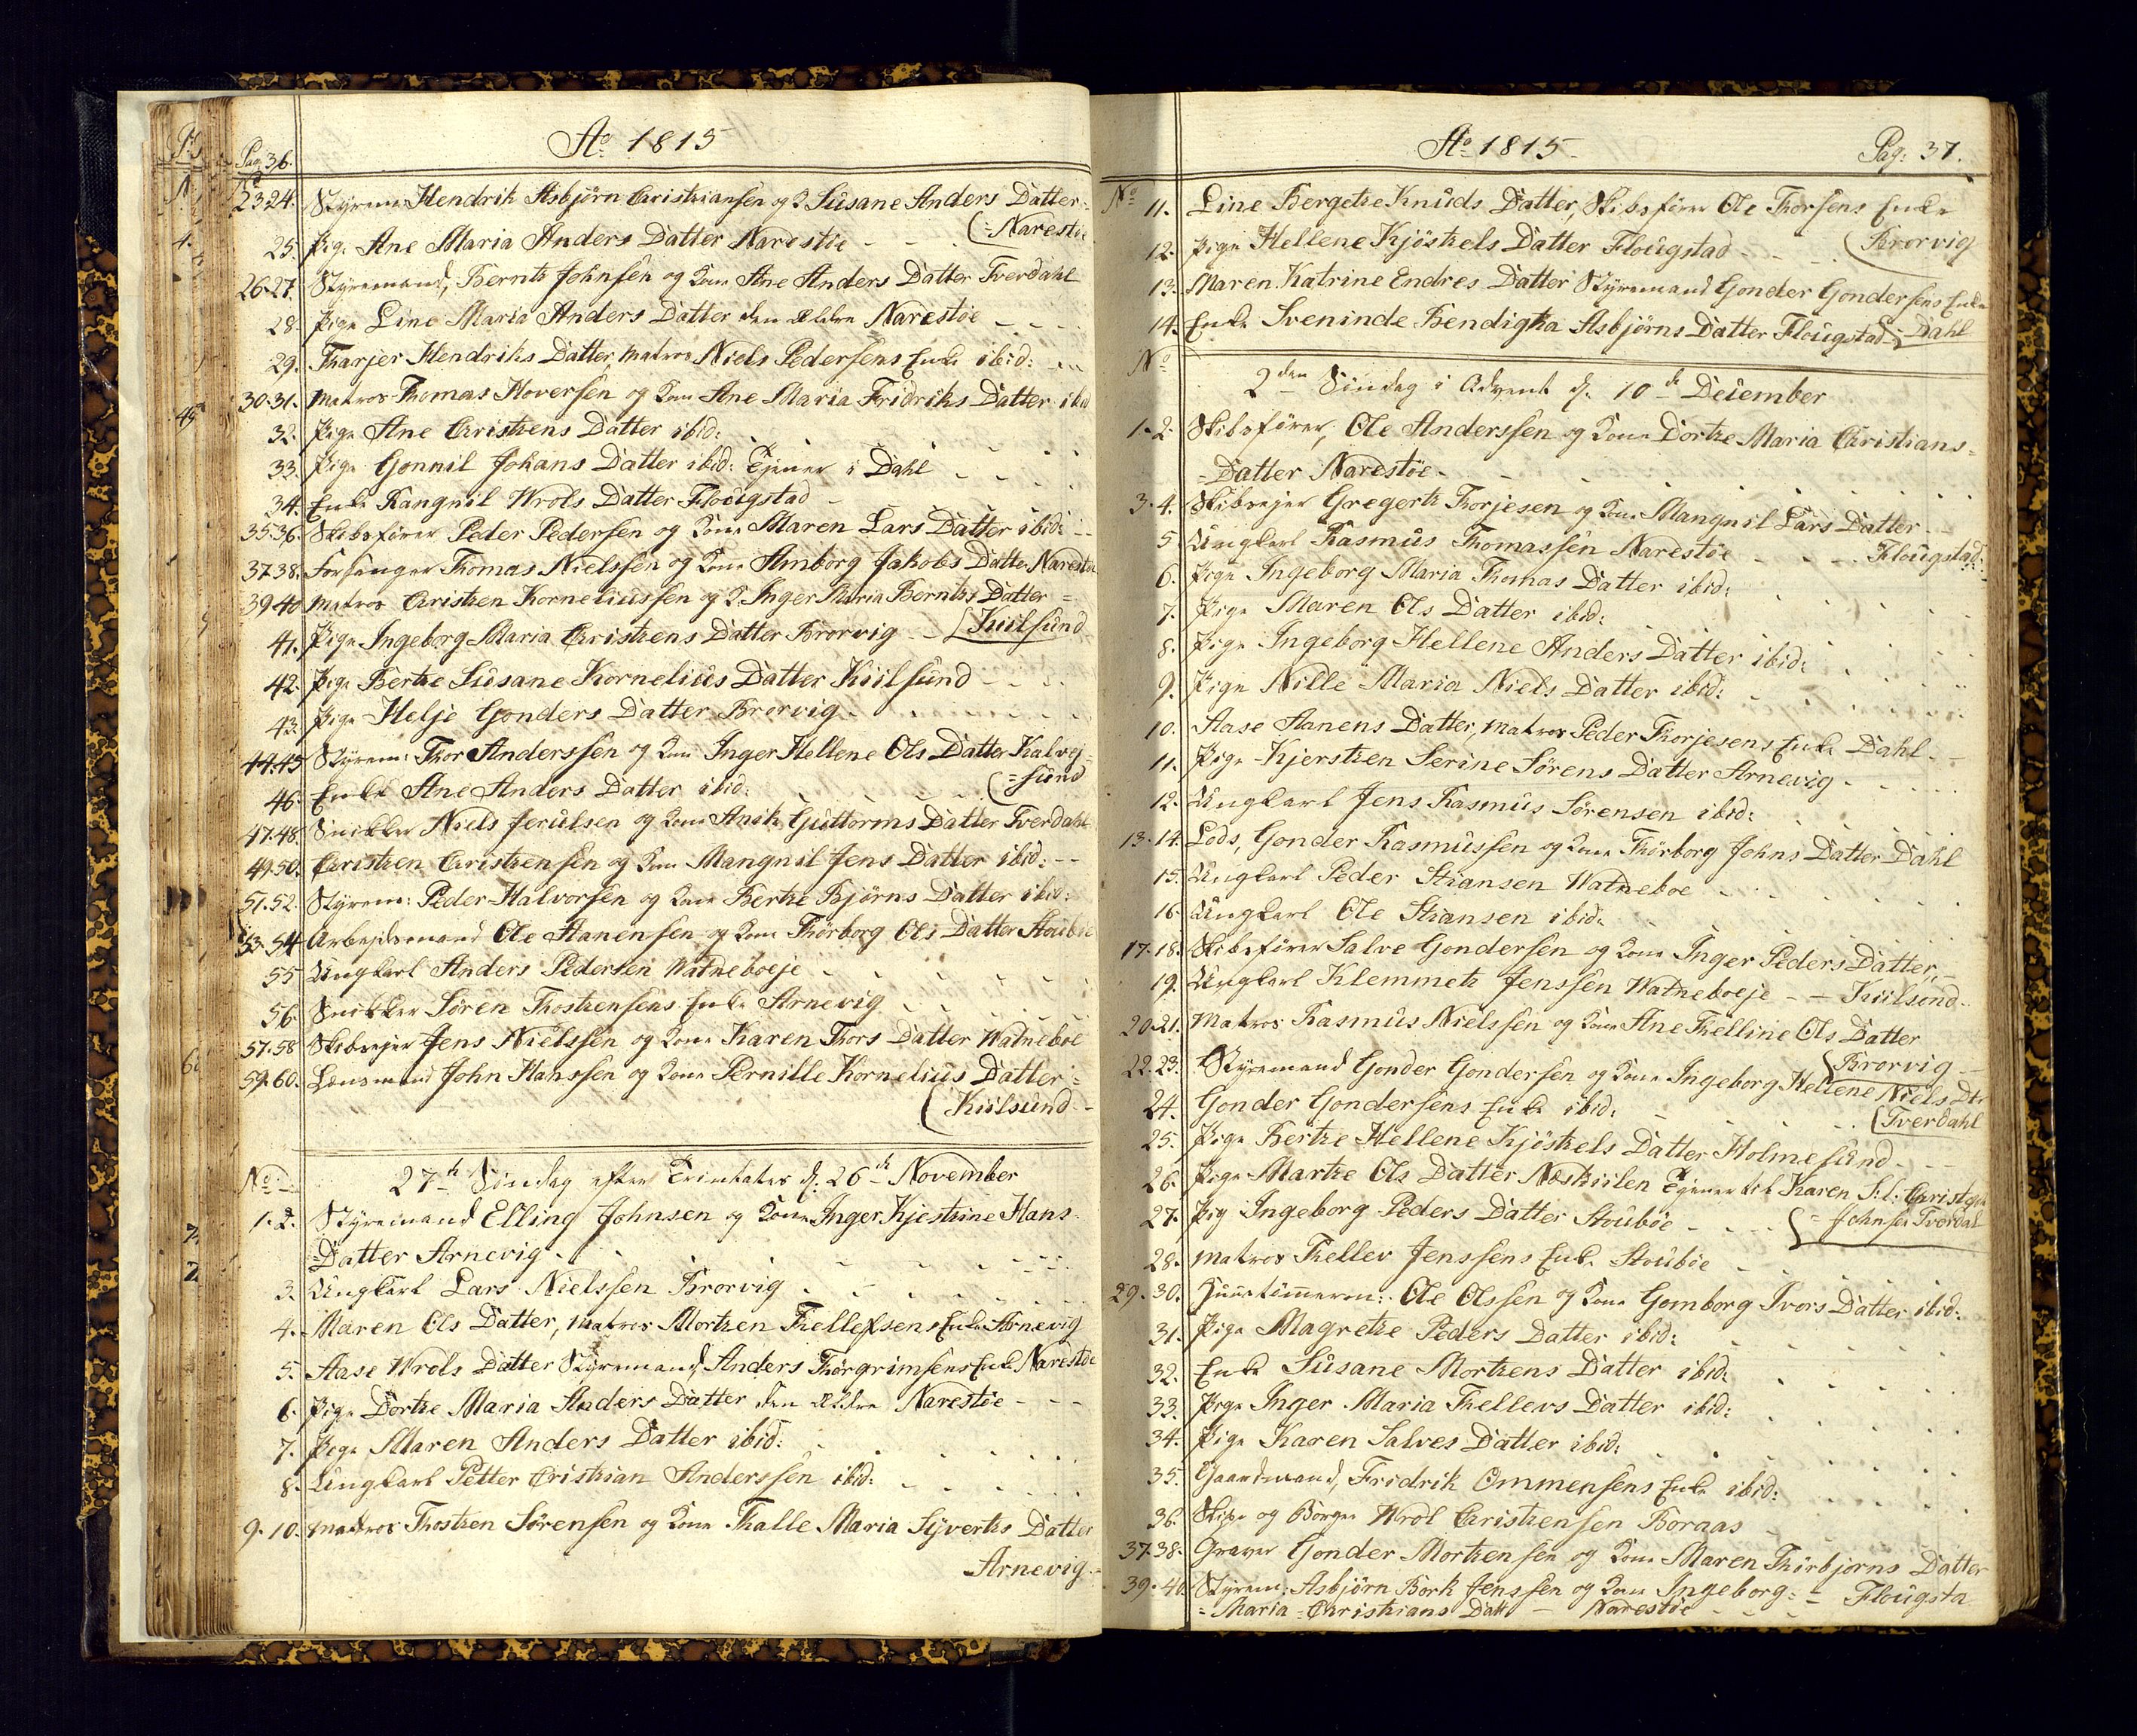 Pag. 36.
Ao 1815
No
23.24. Styrem: Hendrik Asbjørn Christiansen og K. Susane Anders Datter =
(= Narestøe
25. Pige Ane Maria Anders Datter Narestøe
26.27. Styremand, Berntz Johnsen og Kone Ane Anders Datter Tverdahl
28. Pige Line Maria Anders Datter den Ældre Narestøe
29. Tharjer Hendriks Datter, Matros Niels Pedersens Enke ibid:
30.31. Matros Thomas Hoversen og Kone Ane Maria Fridriks Datter ibid
32. Pige Ane Christens Datter ibid:
33. Pige Gonnil Johans Datter ibid: Tjener i Dahl
34. Enke Rangnil Wrols Datter Flougstad
35.36. Skibsfører Peder Pedersen og Kone Maren Lars Datter ibid:
37.38. Forsanger Thomas Nielssen og Kone Amborg Jakobs Datter Narestøe
39.40 Matros Christen Korneliussen og K. Inger Maria Berntzs Datter =
41. Pige Ingeborg Maria Christens Datter Brorvig (Kiilsund
42. Pige Bertze Susane Kornelius Datter Kiilsund
43. Pige Helje Gonders Datter Brorvig
44.45 Styrem: Thor Anderssen og Kone Inger Hellene Ols Datter Kalvej=
(= sund
46. Enke Ane Anders Datter ibid:
47.48. Snikker Niels Jerulsen og Kone Anik Guttorms Datter Tverdahl
49.50. Christen Christensen og Kone Mangnil Jens Datter ibid:
51.52. Styrem: Peder Halvorsen og Kone Bertze Bjørns Datter ibid:
53.54 Arbejdsmand Ole Aanensen og Kone Thørborg Ols Datter Stoubøe
55 Ungkarl Anders Pedersen Watneboeje
56. Snikker Søren Thostensens Enke Arnevig
57.58 Skibsejer Jens Nielssen og Kone Karen Thors Datter Watneboe
59.60. Lensmand John Hanssen og Kone Pernille Kornelius Datter =
(Kiilsund
No 27de Søndag efter Trinitatis d: 26de November
1.2. Styremand Elling Johnsen og Kone Inger Kjestine Hans
= Datter Arnevig
3. Ungkarl Lars Nielssen Brorvig
4. Maren Ols Datter, Matros Mortzen Thellefsens Enke Arnevig
5. Aase Wrols Datter Styremand, Anders Thorgrimsens Enke Narestøe
6. Pige Dortze Maria Anders Datter den Ældre Narestøe
7. Pige Maren Anders Datter ibid:
8. Ungkarl Petter Cristian Anderssen ibid:
9.10. Matros Thostzen Sørensen og Kone Thalle Maria Syvertzs Datter
Arnevig
Ao 1815 Pag: 37.
No
11. Line Bergetze Knuds Datter, Skibsfører Ole Thorsens Enke
12. Pige Hellene Kjøstels Datter Flougstad (Brorvig
13. Maren Katrine Endres Datter Styremand Gonder Gondersens Enke
14. Enke Sveninde Bendigtza Asbjørns Datter Flougstad (Dahl
No
2den Søndag i Advent d: 10de December
1.2. Skibsfører, Ole Anderssen og Kone Dortze Maria Christians =
= Datter Narestøe
3.4. Skibsejer Gregertz Thorjesen og Kone Mangnil Lars Datter
5 Ungkarl Rasmus Thomassen Narestøe Flougstad
6. Pige Ingeborg Maria Thomas Datter ibid:
7. Pige Maren Ols Datter ibid:
8. Pige Ingeborg Hellene Anders Datter ibid:
9. Pige Nille Maria Niels Datter ibid:
10. Aase Aanens Datter, Matros Peder Thorjesens Enke Dahl
11. Pige Kjerstzen Serine Sørens Datter Arnevig
12. Ungkarl Jens Rasmus Sørensen ibid:
13.14. Lods, Gonder Rasmussen og Kone Thørborg Johns Datter Dahl
15. Ungkarl Peder Stiansen Watneboe
16. Ungkarl Ole Stiansen ibid:
17.18. Skibsfører Salve Gondersen og Kone Inger Peders Datter,
19. Ungkarl Klemmetz Jenssen Watneboeje Kiilsund
20.21. Matros Rasmus Nielssen og Kone Ane Thelline Ols Datter
(Brorvig
22.23. Styremand Gonder Gondersen og Kone Ingeborg Hellene Niels Dtr
24. Gonder Gondersens Enke ibid: (Tverdahl
25. Pige Bertze Hellene Kjøstels Datter Holmesund
26. Pige Martze Ols Datter Neskiilen Tjener til Karen S:l: Christen
27. Pig Ingeborg Peders Datter Stoubøe (= Johnsen Tverdal
28. Matros Thellev Jenssens Enke Stoubøe
29.30. Huustømmerm: Ole Olssen og Kone Gomborg Ivors Datter ibid:
31. Pige Magretze Peders Datter ibid:
32. Enke Susane Mortzens Datter ibid:
33. Pige Inger Maria Thellevs Datter ibid:
34. Pige Karen Salves Datter ibid:
35. Gaardmand, Fridrik Ommensens Enke ibid:
36. Skipr og Borger Wrol Christensen Boraas
37.38. Graver Gonder Mortzensen og Kone Maren Thørbjørns Datter
39.40. Styrem: Asbjørn Bork Jenssen og Kone Ingeborg = Flougsta
= Maria Christians Datt Narestøe